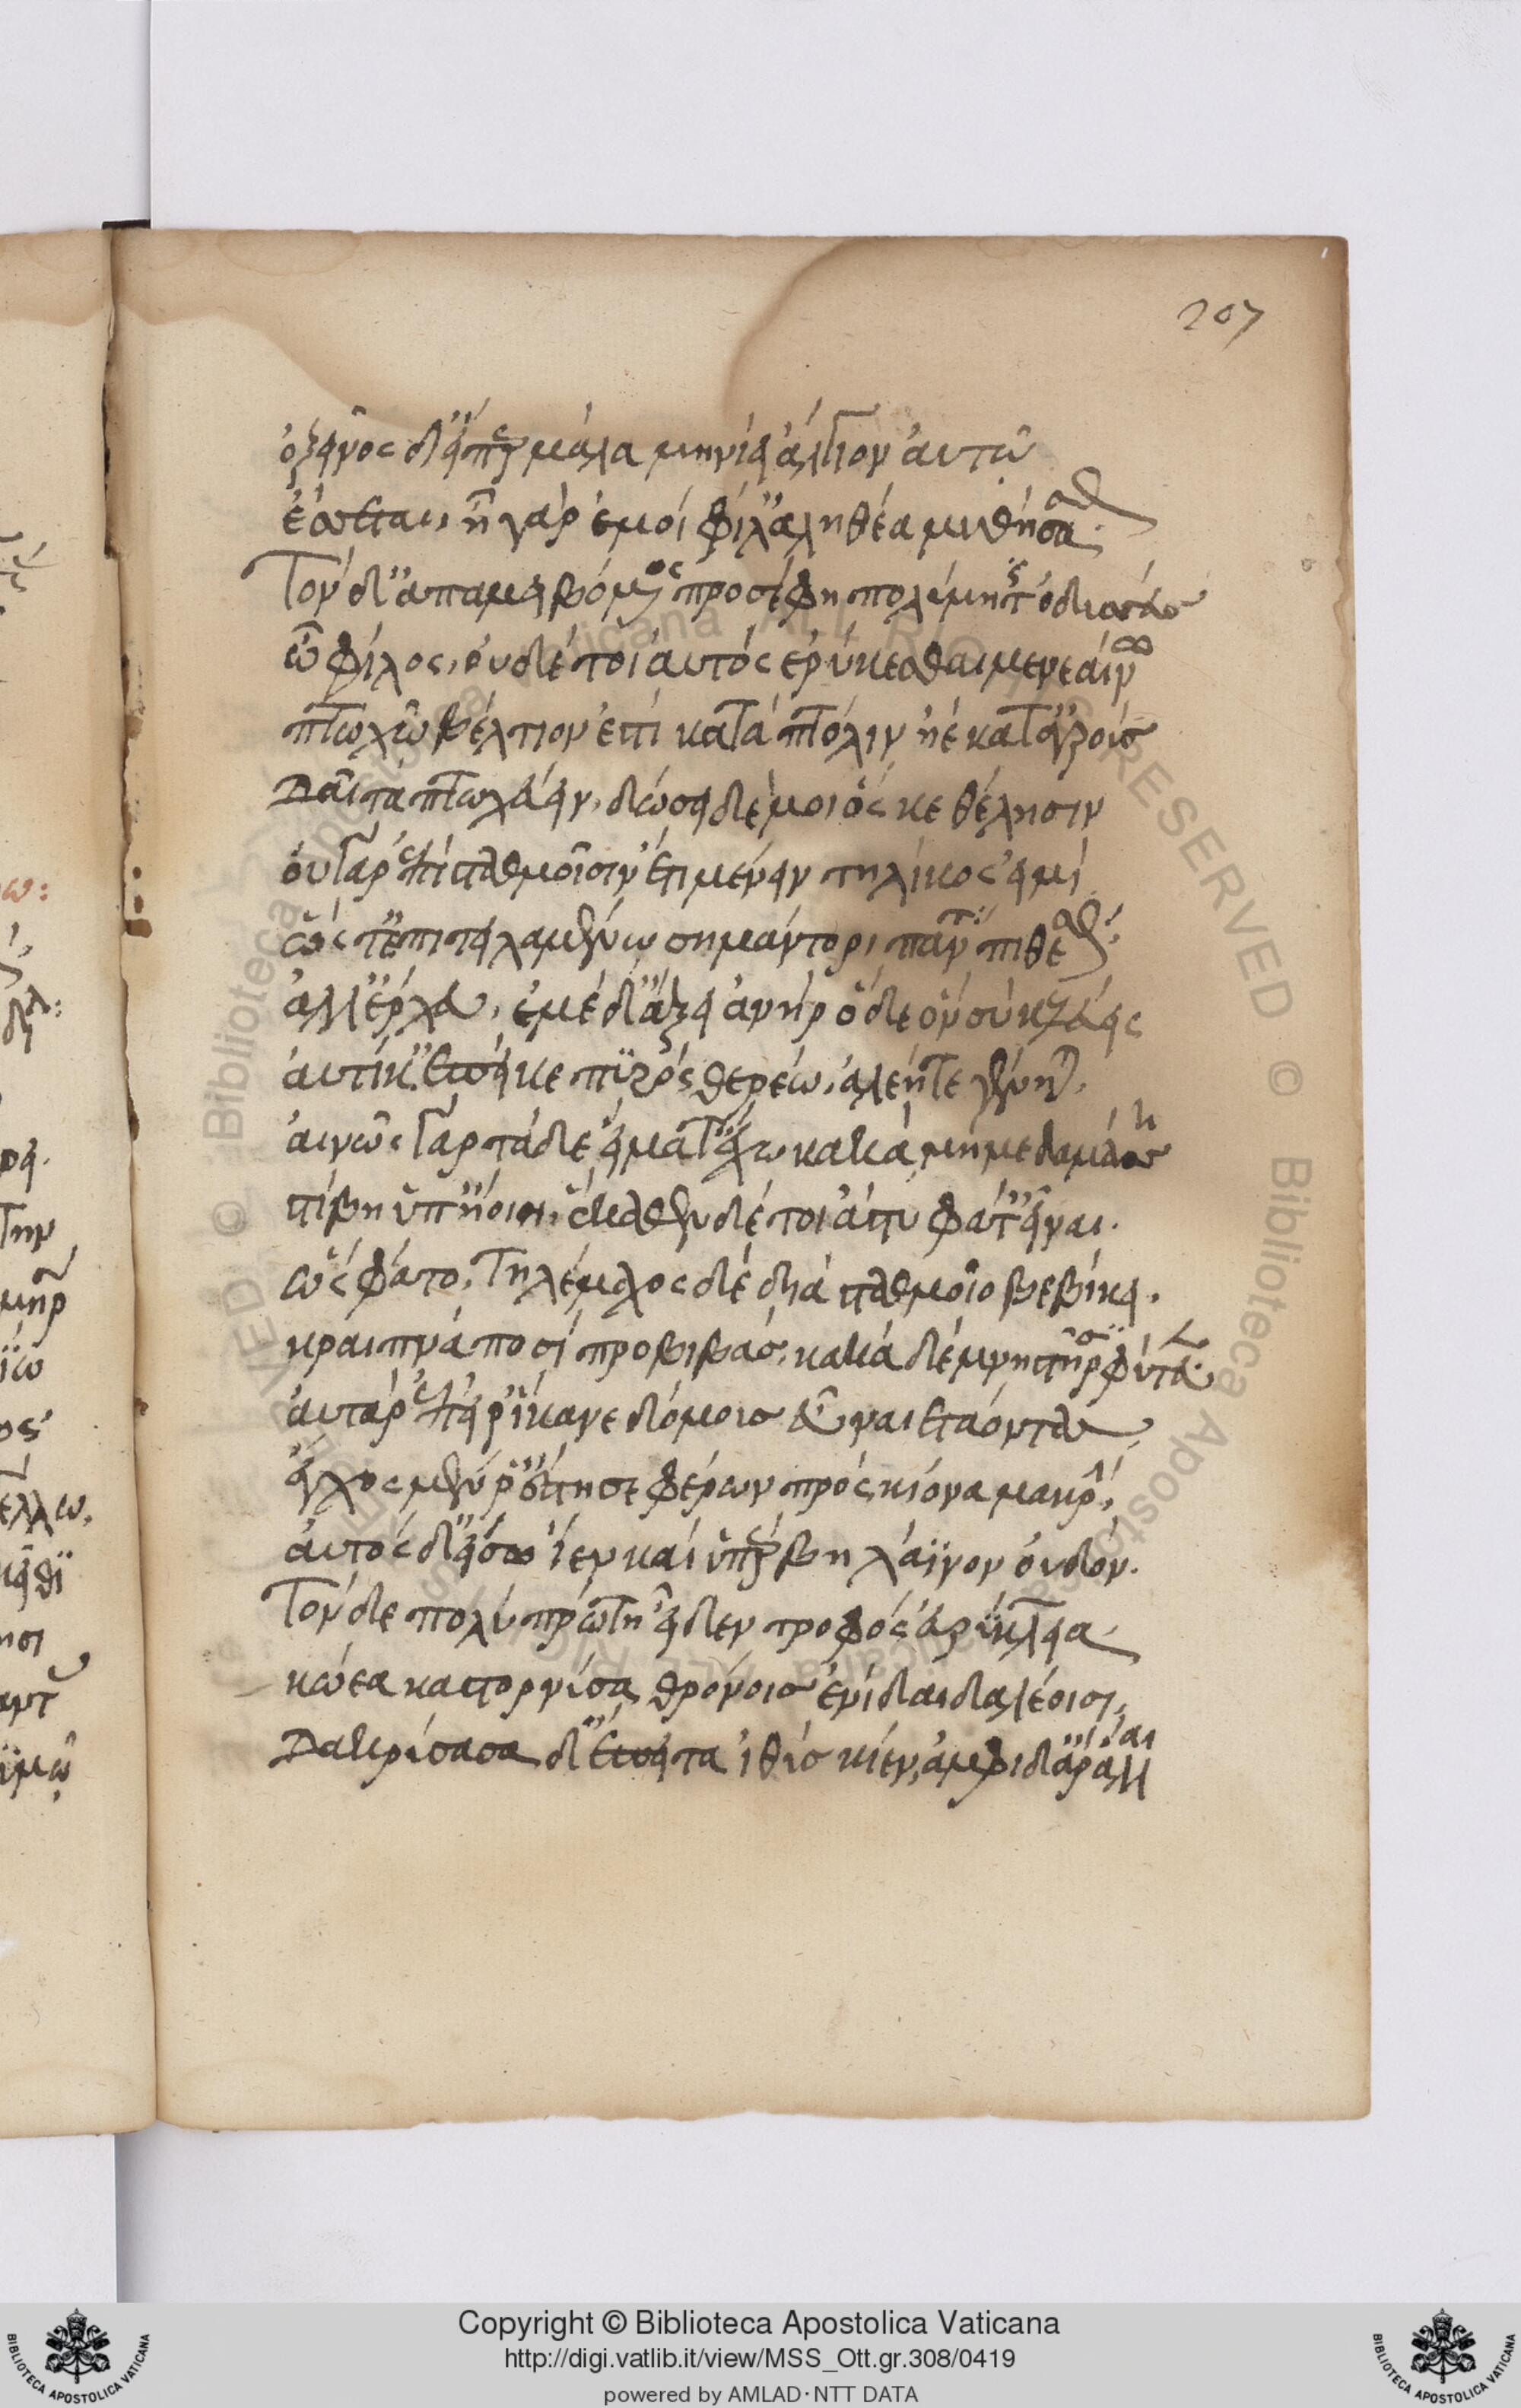 207
ὁ ξεῖνος δ' εἴπερ μάλα μηνίει ἄλγιον αὐτῶ
ἔσσεται, ἦ γὰρ ἐμοὶ φίλ' ἀληθέα μυθήσασθαι.
Τὸν δ' ἀπαμειβόμενος προσέφη πολύμητις ὀδυσσεύς
ὦ φίλος, οὐδέ τοι αὐτὸς ἐρύκεσθαι μενεαίνω
πτωχῶ βέλτιον ἐστὶ κατὰ πτόλιν ἠὲ κατ' ἀγροὺς
δαῖτα πτωχεύειν, δώσει δέ μοι ὅς κε θέλησιν
οὐ γὰρ ἐπὶ σταθμοῖσιν ἔτι μένειν τηλίκος εἰμί
ὥς τ' ἐπιτειλαμένω σημάντορι πάντα πιθέσθαι.
ἀλλ' ἔρχευ, ἐμὲ δ' ἄξει ἀνὴρ ὅδε ὃν σὺ κελεύεις
αὐτίκ' ἐπεί κε πυρὸς θερέω, ἀλέη τε γένηται,
αἰνῶς γὰρ τάδε εἵματ' ἔχω κακά, μή με δαμάσση
στίβη ὑπηοίη, ἕκαθεν δέ τοι ἄστυ φάτ' εἶναι.
ὣς φάτο, Τηλέμαχος δὲ διὰ σταθμοῖο βεβήκει.
κραιπνὰ ποσὶ προβιβάς, κακὰ δὲ μνηστῆρσι φύτευεν
αὐτὰρ ἐπεί ρ' ἵκανε δόμους εὖ ναιετάοντας
ἔγχος μέν ρ' ἔστησε φέρων πρὸς κίονα μακρήν,
αὐτὸς δ' εἴσω ἴεν καὶ ὑπέρβη λάϊνον οὐδόν.
Τὸν δὲ πολὺ πρώτη εἶδεν τροφὸς εὐρύκλεια
κώεα καστορνύσα θρόνοις ἐνὶ δαιδαλέοισι,
δακρύσασα δ' ἔπειτα ἰθὺς κίεν, ἀμφὶ δ' ἄρ' ἄλλαι
Copyright © Biblioteca Apostolica Vaticana
http://digi.vatlib.it/view/MSS_Ott.gr.308/0419
powered by AMLAD·NTT DATA